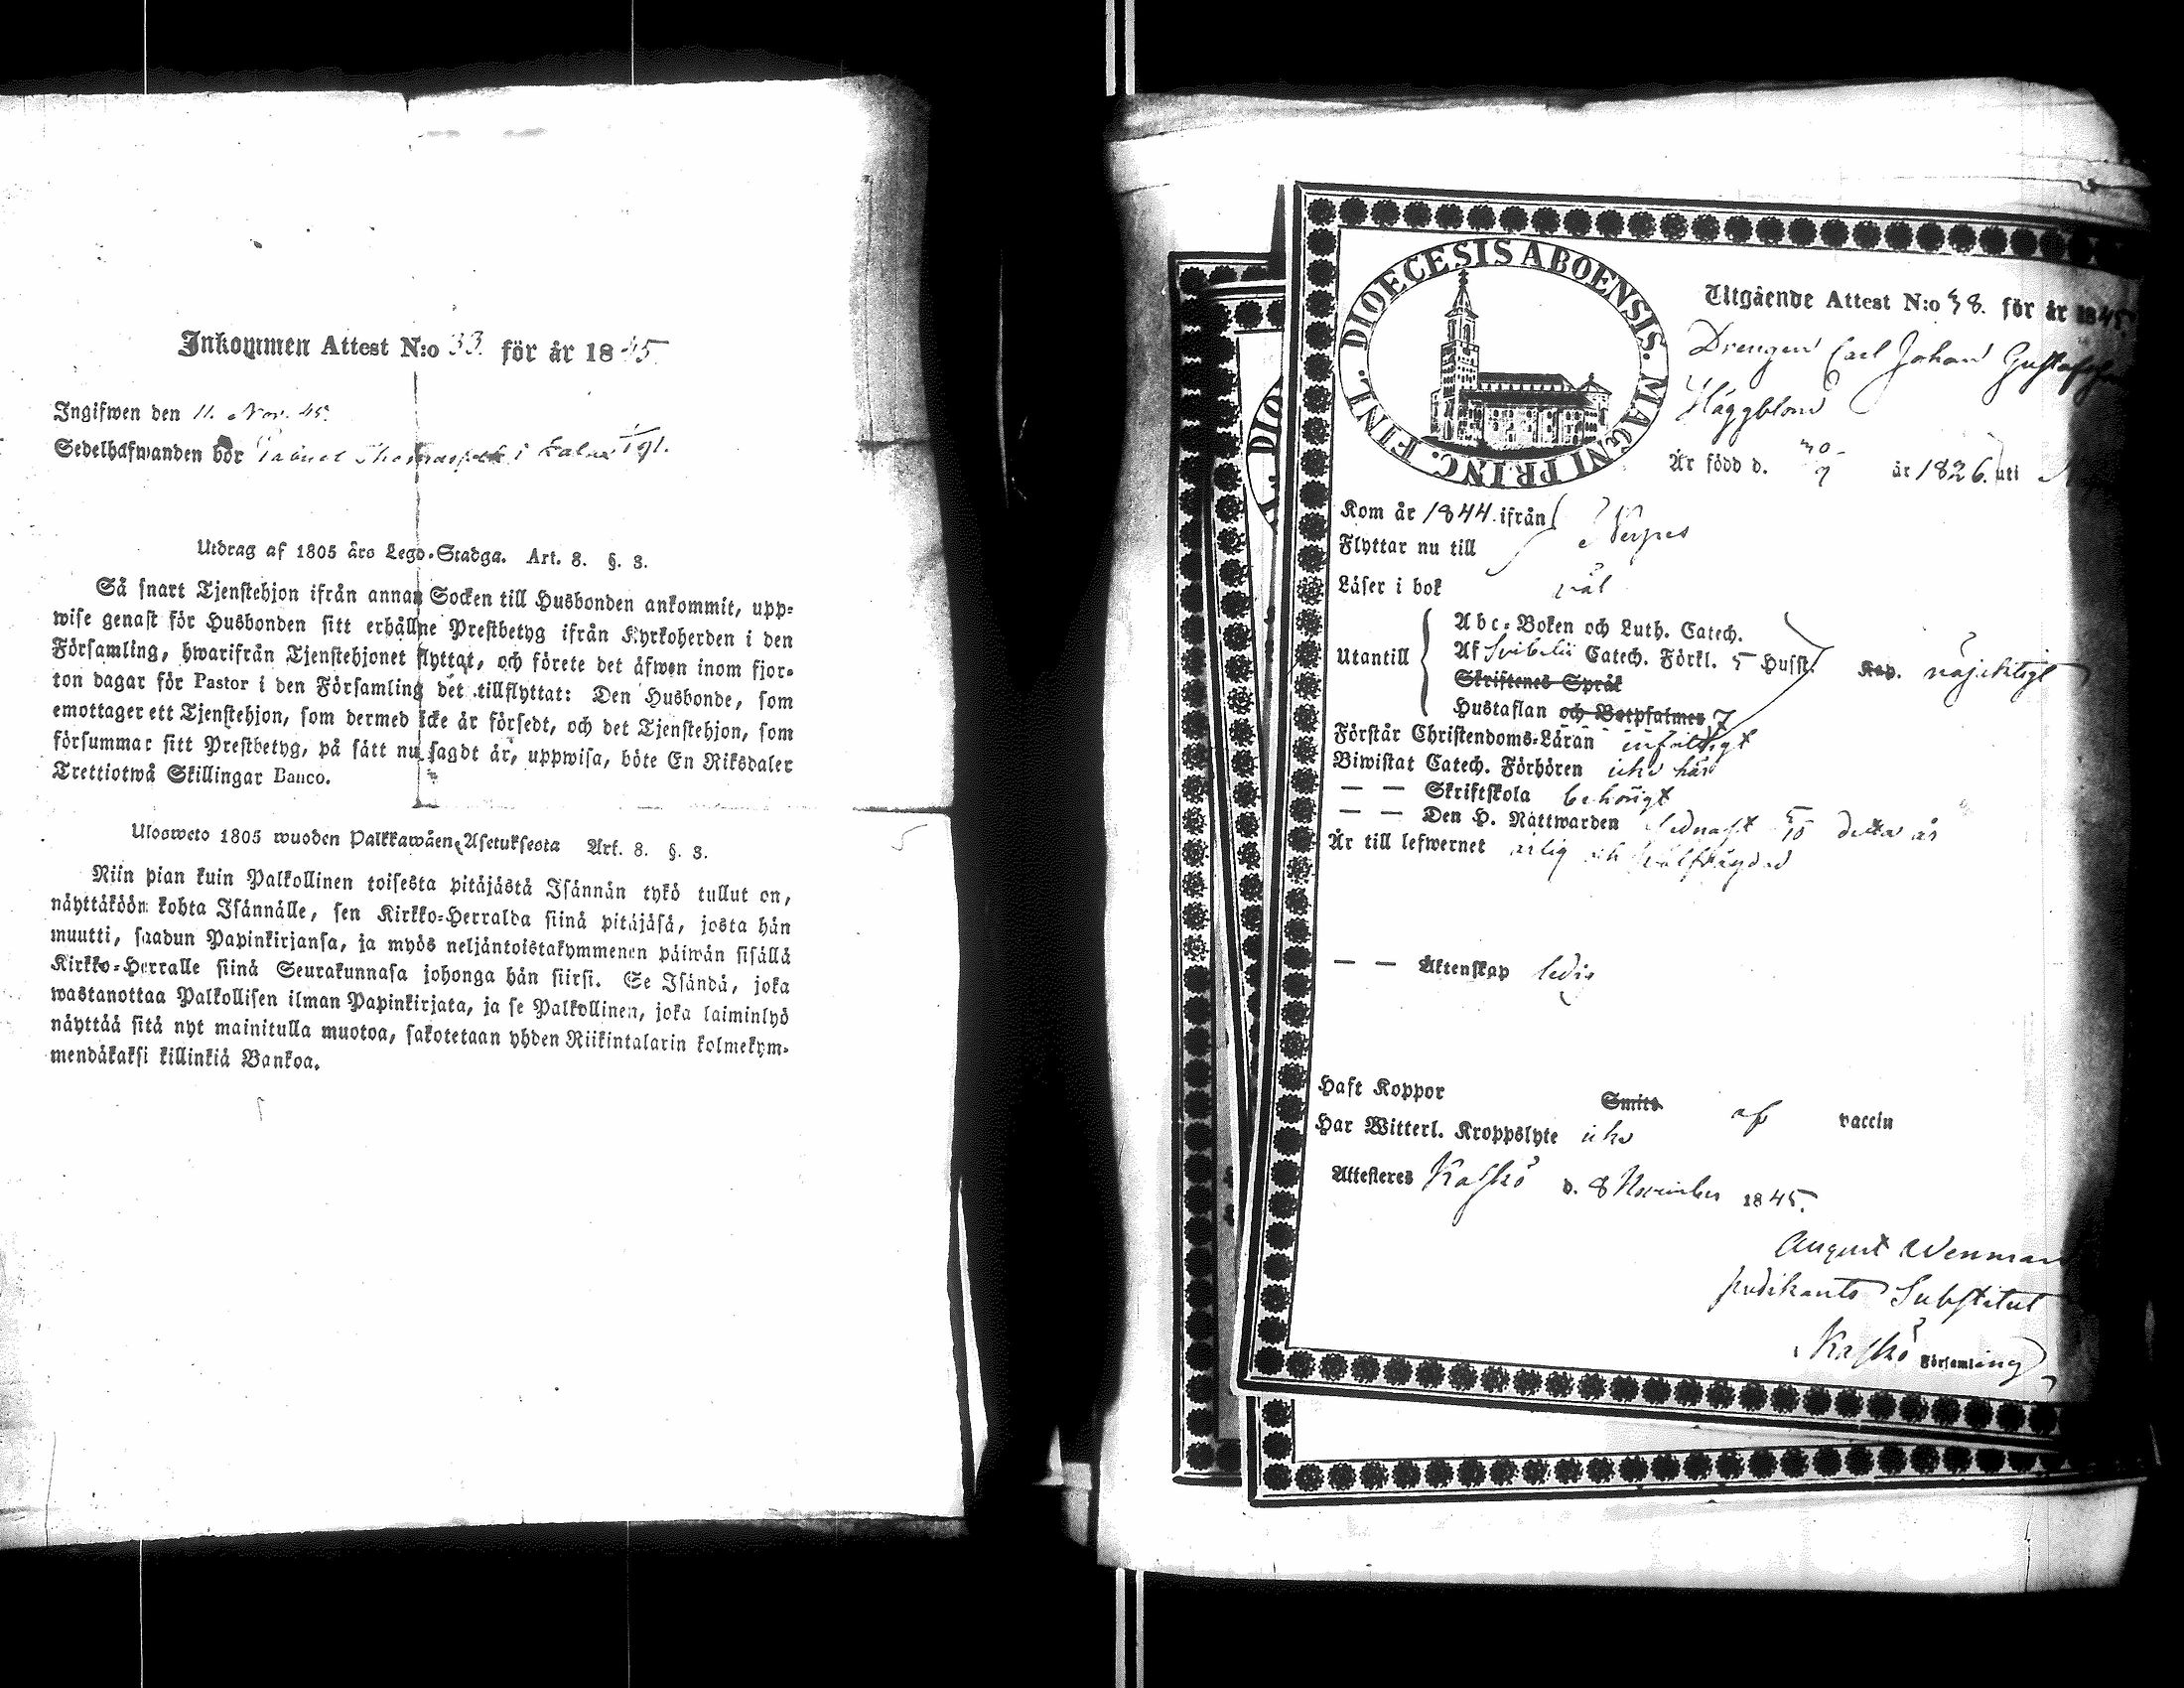 Inkommen Attest N:o 33. för år 1845.
Ingifwen den 11. Nov. 45.
Sedelhafwanden bor i
Utdrag af 1805 års Lego-Stadga. Art. 8. §. 3.
Så snart Tjenstehjon ifrån annan Socken till Husbonden ankommit, upp-
wise genast för Husbonden sitt erhållne Prestbetyg ifrån Kyrkoherden i den
Församling, hwarifrån Tjenstehjonet flyttat, och förete det äfwen inom fjor-
ton dagar för Pastor i den Församling det tillflyttat: Den Husbonde, som
emottager ett Tjenstehjon, som dermed icke är försedt, och det Tjenstehjon, som
försummar sitt Prestbetyg, på sätt nu sagdt är, uppwisa, böte En Riksdaler
Trettiotwå Skillingar Banco.
Ulosweto 1805 wuoden Palkkawäen Asetuksesta Art. 8. §. 3.
Niin pian kuin Palkollinen toisesta pitäjästä Isännän tykö tullut on,
näyttäköön kohta Isännälle, sen Kirkko-Herralda siinä pitäjäsä, josta hän
muutti, saadun Papinkirjansa, ja myös neljäntoistakymmenen päiwän sisällä
Kirkko-Herralle siinä Seurakunnasa johonga hän siirsi. Se Isändä, joka
wastanottaa Palkollisen ilman Papinkirjata, ja se Palkollinen, joka laiminlyö
näyttää sitä nyt mainitulla muotoa, sakotetaan yhden Riikintalarin kolmekym-
mendäkaksi killinkiä Bankoa.
DIOECESIS ABOENSIS. MAGNI PRINC. FINL.
DIO
Utgående Attest N:o 38. för år 1845
Drengen Carl Johan Gustafsson
Häggblom
Är född d. år 1826. uti
Kom år 1844. ifrån
Flyttar nu till Nerpes
Läser i bok väl
Utantill
Abc-Boken och Luth. Catech.
Af Svebelii Catech. Förkl. 5 Husst.
Skriftenes Språk
Hustaflan och Botpsalmer 7
Kap. nöjaktigt
Förstår Christendoms-Läran enfaldigt
Biwistat Catech. Förhören icke här
— — Skriftskola behörigt
— — Den H. Nattwarden sednast 5/10 detta år
Är till lefwernet ärlig och wälfrägdad
— — Äktenskap ledig
Haft Koppor Smitt. af vaccin
Har Witterl. Kroppslyte icke
Attesteres Kaskö d. 8 November 1845.
August Wenman
predikants Substitut
Kaskö Församling